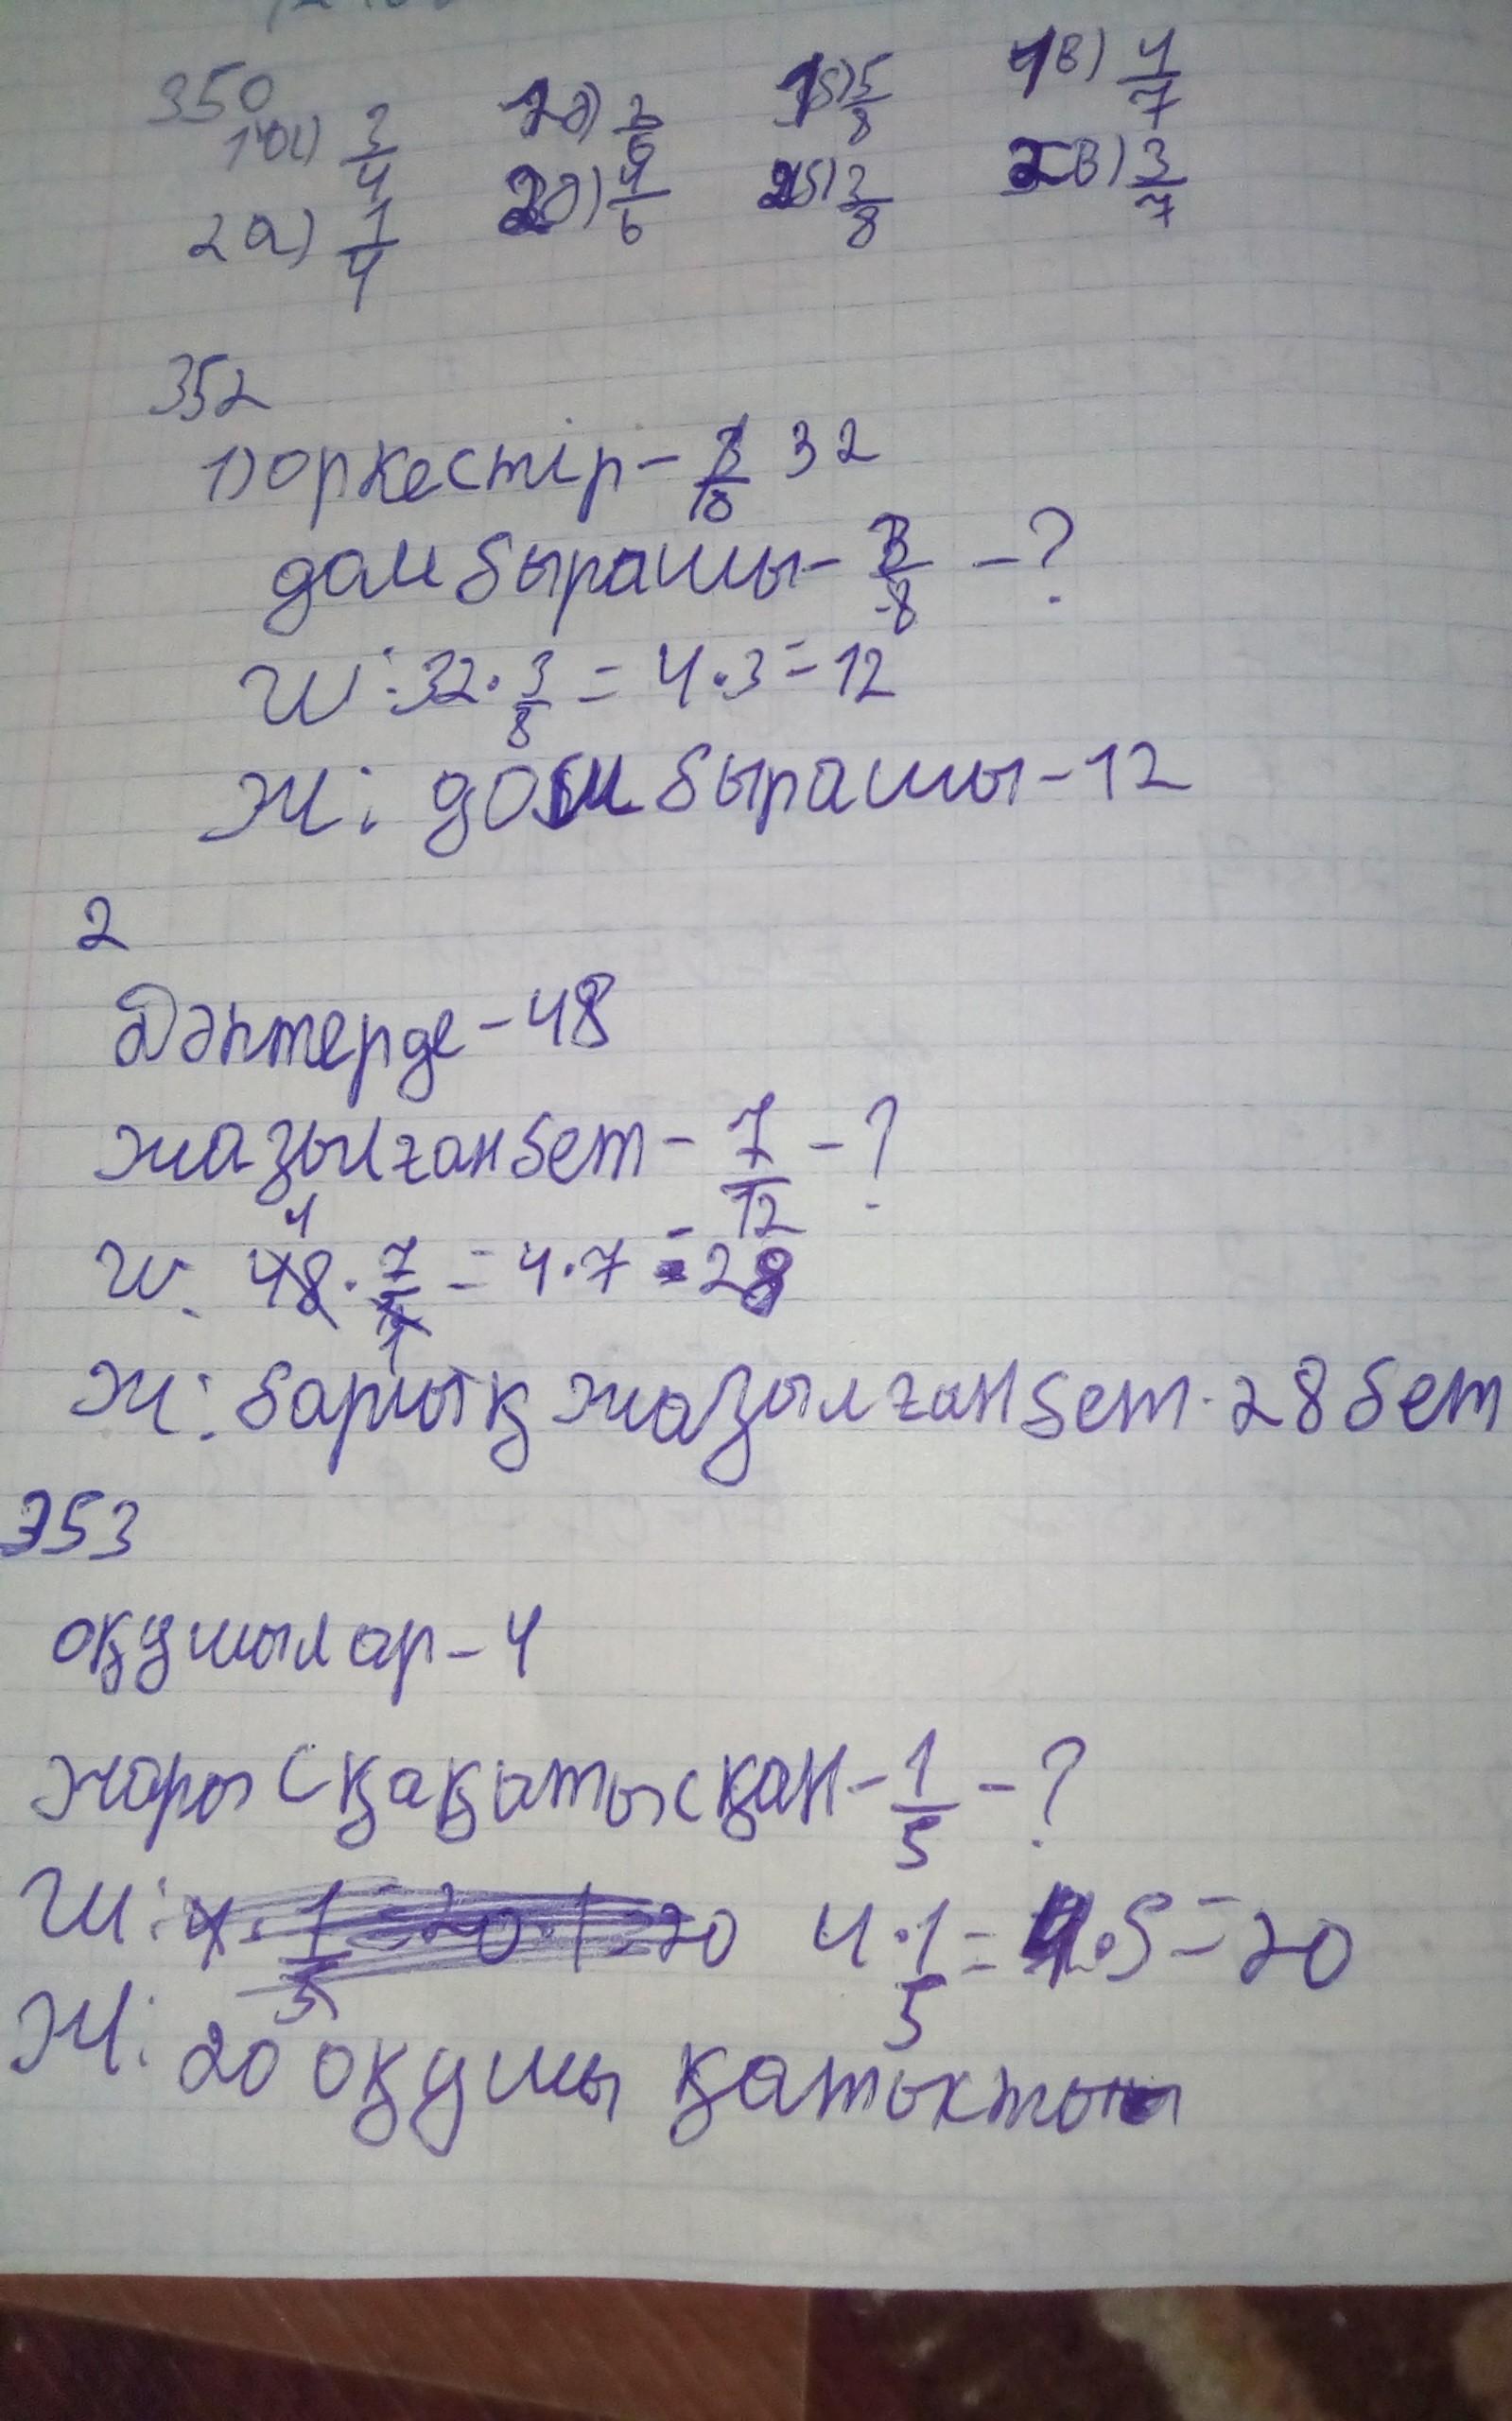 350
1 а) 3/4 1 ә) 2/6 1 б) 5/8 1 в) 4/7
2 а) 1/4 2 ә) 4/6 2 б) 3/8 2 в) 3/7
352
1) оркестір - 32
домбырашы - 3/8 - ?
Ш: 32 · 3/8 = 4 · 3 = 12
Ж: домбырашы - 12
2
Дәптерде - 48
жазылған бет - 7/12 - ?
Ш: 48 · 7/12 = 4 · 7 = 28
Ж: барлық жазылған бет - 28 бет
353
оқушылар - 4
жарысқа қатысқан - 1/5 - ?
Ш: 4 · 1/5 = 4 · 5 = 20
Ж: 20 оқушы